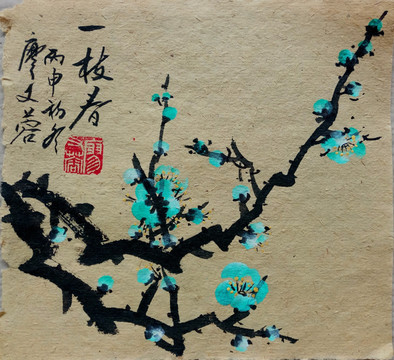 一枝春
丙申初冬
廖文蓉